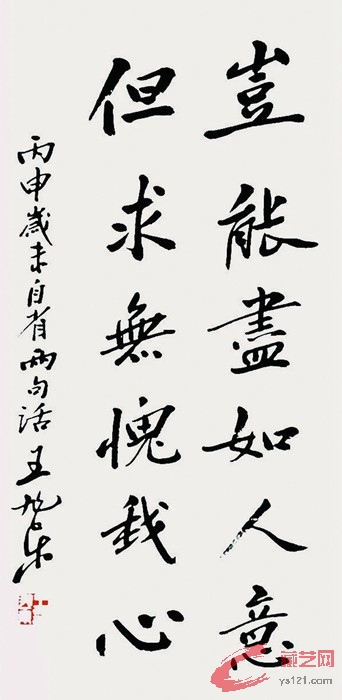 豈能盡如人意
但求無愧我心
丙申歲末自省兩句話王旭东
藏艺网
ys121.com